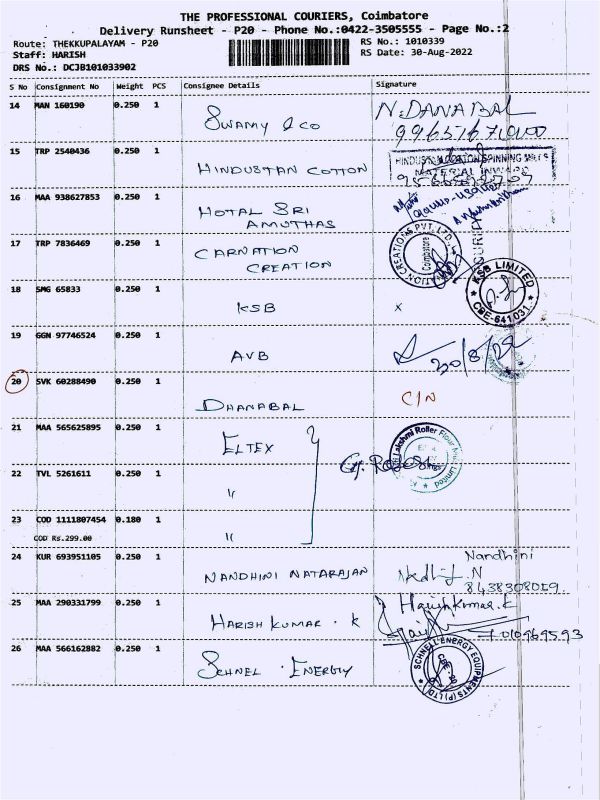 THE PROFESSIONAL COURIERS, Coimbatore
Delivery Runsheet - P20 - Phone No.:0422-3505555 - Page No.:2
Route: THEKKUPALAYAM - P20
Staff: HARISH
DRS No.: DCJB101033902
RS No.: 1010339
RS Date: 30-Aug-2022
S No Consignment No Weight PCS Consignee Details Signature
14 MAN 160190 0.250 1 SWAMY & CO N.DANABAL
15 TRP 2540436 0.250 1 HINDUSTAN COTTON
HINDUSTAN COTTON SPINNING MILLS
MATERIAL INWARD
16 MAA 938627853 0.250 1 HOTAL SRI AMUTHAS
17 TRP 7836469 0.250 1 CARNATION CREATION
CREATIONS PVT. LTD.
Coimbatore
18 SMG 65833 0.250 1 KSB x
KSB LIMITED
CBE-641 031.
19 GGN 97746524 0.250 1 AVB 30/8/22
20 SVK 60288490 0.250 1 DHANABAL C/N
21 MAA 565625895 0.250 1 ELTEX
Lakshmi Roller Flour Mills Limited
22 TVL 5261611 0.250 1 "
23 COD 1111807454 0.180 1 "
COD Rs.299.00
24 KUR 693951105 0.250 1 NANDHINI NATARAJAN Nandhini
8438308019
25 MAA 290331799 0.250 1 HARISH KUMAR . K Harishkumar.K
7010969593
26 MAA 566162882 0.250 1 SCHNEL . ENERGIY
SCHNELL ENERGY EQUIPMENTS (P) LTD
CBE-20